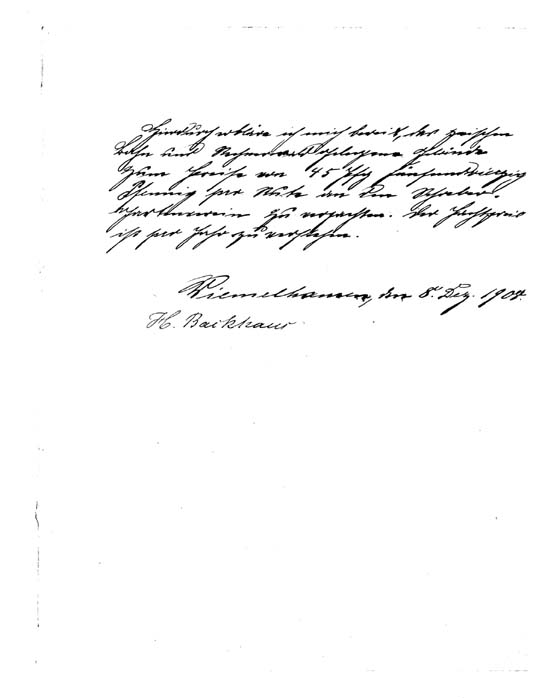 Hierdurch erkläre ich mich bereit, das zwischen
Bahn und gelegene Gelände
zum Preise von 45 Pfg fünfundvierzig
Pfennig pro Rute an den Schreber-
gartenverein zu verpachten. Der Pachtpreis
ist per Jahr zu verstehen.
Wiemelhausen, den 8. Dez. 1904.
H. Backhaus